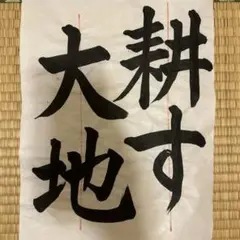 耕す
大地